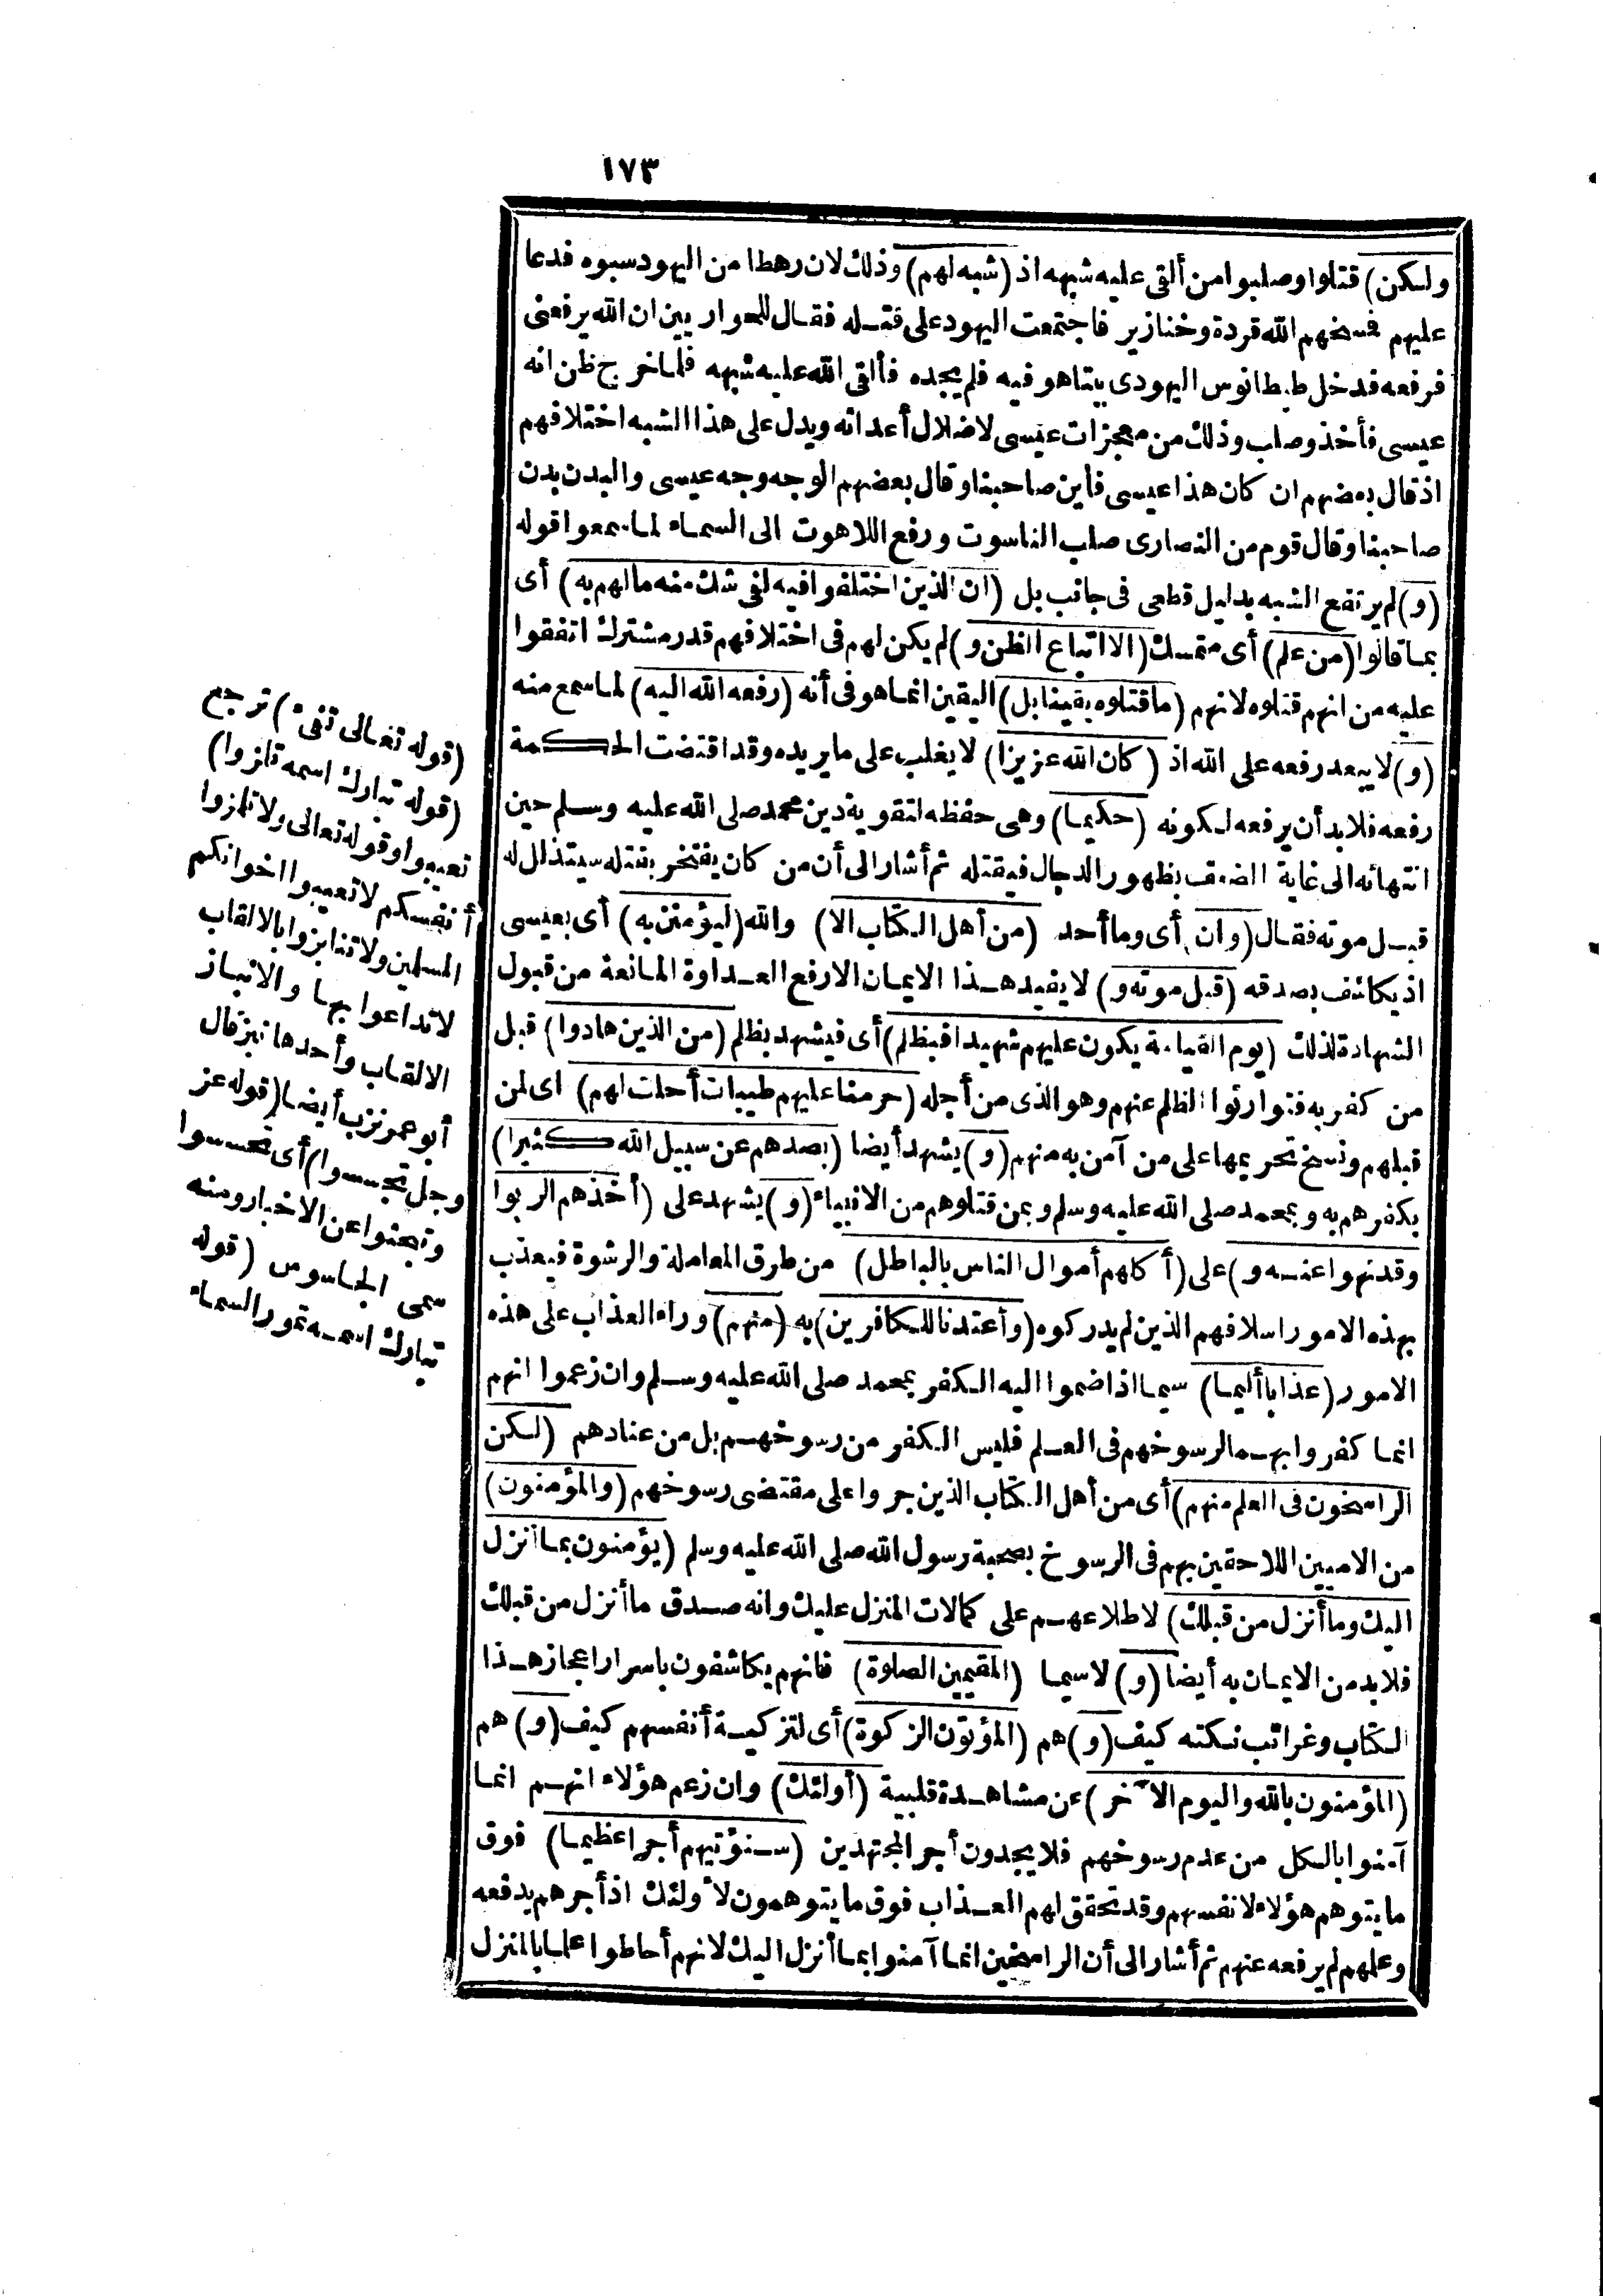 ١٧٣
ولكن) قتلوا وصلبوا من ألقى عليه شبهه اذ (شبه لهم) وذلك لان رهطا من اليهود سبوه فدعا
عليهم فمسخهم الله قردة وخنازير فاجتمعت اليهود على قتله فقال للحواريين ان الله يرفعنى
فرفعه فدخل طيطانوس اليهودى بيتا هو فيه فلم يجده فألقى الله عليه شبهه فلما خرج ظن انه
عيسى فأخذ وصلب وذلك من معجزات عيسى لاضلال أعدائه ويدل على هذا الشبه اختلافهم
اذ قال بعضهم ان كان هذا عيسى فأين صاحبنا وقال بعضهم الوجه وجه عيسى والبدن بدن
صاحبنا وقال قوم من النصارى صلب الناسوت ورفع اللاهوت الى السماء لما سمعوا قوله
(و) لم يرتفع الشبه بدليل قطعى فى جانب بل (ان الذين اختلفوا فيه لفى شك منه ما لهم به) أى
بما قالوا (من علم) أى متمسك (الا اتباع الظن و) لم يكن لهم فى اختلافهم قدر مشترك اتفقوا
عليه من انهم قتلوه لانهم (ما قتلوه يقينا بل) اليقين انما هو فى أنه (رفعه الله اليه) لما سمع منه
(و) لا يبعد رفعه على الله اذ (كان الله عزيزا) لا يغلب على ما يريده وقد اقتضت الحكمة
رفعه فلا بد أن يرفعه لكونه (حكيما) وهى حفظه لتقوية دين محمد صلى الله عليه وسلم حين
انتهائه الى غاية الضعف بظهور الدجال فيقتله ثم أشار الى أن من كان يفتخر بقتله سيتذلل له
قبل موته فقال (وان) أى وما أحد (من أهل الكتاب الا) والله (ليؤمنن به) أى بعيسى
اذ يكاشف بصدقه (قبل موته و) لا يفيد هذا الايمان الا رفع العداوة المانعة من قبول
الشهادة لذلك (يوم القيامة يكون عليهم شهيدا فبظلم) أى فيشهد بظلم (من الذين هادوا) قبل
من كفر به فتوارثوا الظلم عنهم وهو الذى من أجله (حرمنا عليهم طيبات أحلت لهم) اى لمن
قبلهم ونسخ تحريمها على من آمن به منهم (و) يشهد أيضا (بصدهم عن سبيل الله كثيرا)
بكفرهم به وبمحمد صلى الله عليه وسلم وبمن قتلوهم من الانبياء (و) يشهد على (أخذهم الربوا
وقد نهوا عنه و) على (أكلهم أموال الناس بالباطل) من طرق المعاملة والرشوة فيعذب
بهذه الامور اسلافهم الذين لم يدركوه (وأعتدنا للكافرين) به (منهم) وراء العذاب على هذه
الامور (عذابا أليما) سيما اذا ضموا اليه الكفر بمحمد صلى الله عليه وسلم وان زعموا انهم
انما كفروا بهما لرسوخهم فى العلم فليس الكفر من رسوخهم بل من عنادهم (لكن
الراسخون فى العلم منهم) أى من أهل الكتاب الذين جروا على مقتضى رسوخهم (والمؤمنون)
من الاميين اللاحقين بهم فى الرسوخ بصحبة رسول الله صلى الله عليه وسلم (يؤمنون بما أنزل
اليك وما أنزل من قبلك) لاطلاعهم على كمالات المنزل عليك وانه صدق ما أنزل من قبلك
فلا بد من الايمان به أيضا (و) لا سيما (المقيمين الصلوة) فانهم يكاشفون باسرار اعجاز هذا
الكتاب وغرائب نكته كيف (و) هم (المؤتون الزكوة) أى لتزكية أنفسهم كيف (و) هم
(المؤمنون بالله واليوم الآخر) عن مشاهدة قلبية (أولئك) وان زعم هؤلاء انهم انما
آمنوا بالكل من عدم رسوخهم فلا يجدون أجر المجتهدين (سنؤتيهم أجرا عظيما) فوق
ما يتوهم هؤلاء لانفسهم وقد تحقق لهم العذاب فوق ما يتوهمون لأولئك اذ أجرهم يدفعه
وعلمهم لم يرفعه عنهم ثم أشار الى أن الراسخين انما آمنوا بما أنزل اليك لانهم أحاطوا علما بالمنزل
(قوله تعالى تفىء) ترجع
(قوله تبارك اسمه تلمزوا)
تعيبوا وقوله تعالى ولا تلمزوا
أنفسكم لا تعيبوا اخوانكم
المسلمين ولا تنابزوا بالالقاب
لا تداعوا بها والانباز
الالقاب وأحدها نبز قال
أبو عمر نزب أيضا (قوله عز
وجل تجسسوا) أى تحسسوا
وتبحثوا عن الاخبار ومنه
سمى الجاسوس (قوله
تبارك اسمه تمور السماء